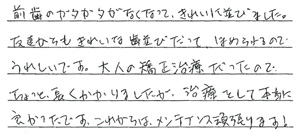 前歯のガタガタがなくなって、きれいに並びました。
友達からもきれいな歯並びだって、ほめられるので
うれしいです。大人の矯正治療だったので
ちょっと長くかかりましたが、治療をして本当に
良かったです。これからは、メンテナンス頑張ります!